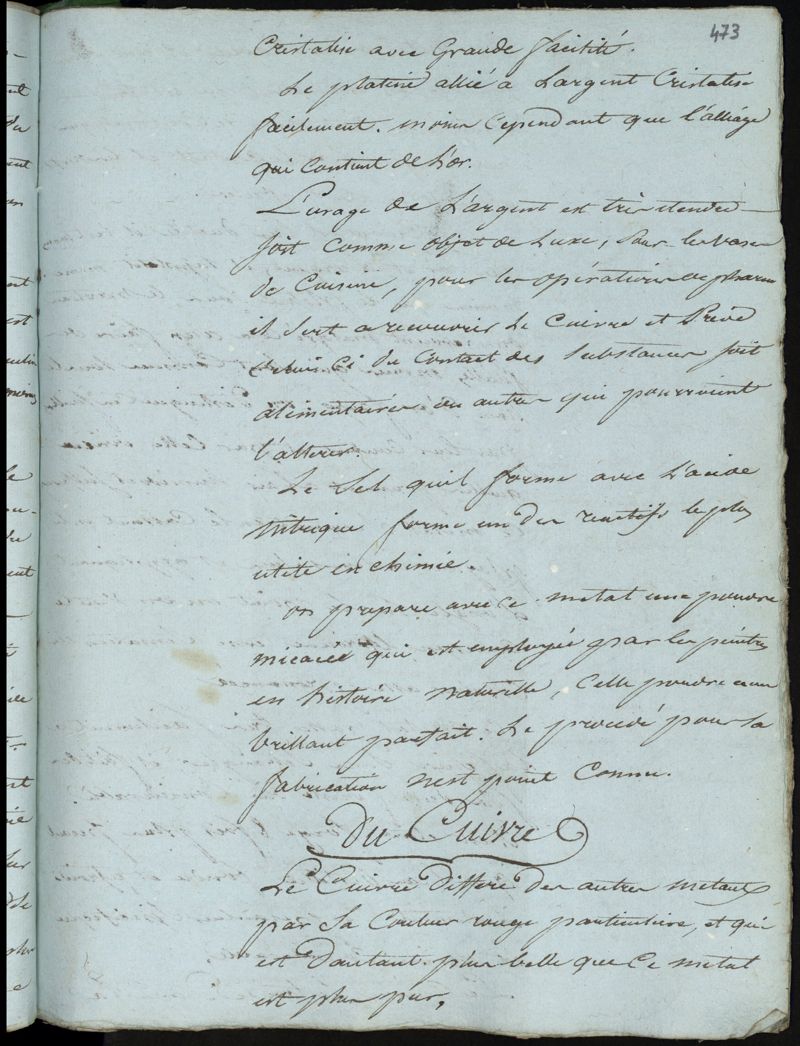 473
Cristalise avec Grande facilité.
Le platine allié a Largent Cristalise
facilement. moins Cependant que l'alliage
qui Contient de L'or.
L'usage de L'argent est très etendu
soit Comme objet de Luxe, pour les vases
de Cuisine, pour les opérations de pharm
il Sert a recouvrir Le Cuivre et Prive
celui Ci du Contact des Substances soit
alimentaires ou autres qui pourroient
l'alterer.
Le Sel quil forme avec L'acide
nitrique forme un des reactifs le plus
utile en chimie.
on prepare avec ce metal une poudre
micacée qui est employée par les peintres
en histoire naturelle, Cette poudre a un
brillant parfait. Le procedé pour sa
fabrication n'est point Connu.
Du Cuivre
Le Cuivre Differe des autres metaux
par Sa Couleur rouge particuliere, et qui
est Dautant plus belle que Ce metal
est plus pur,